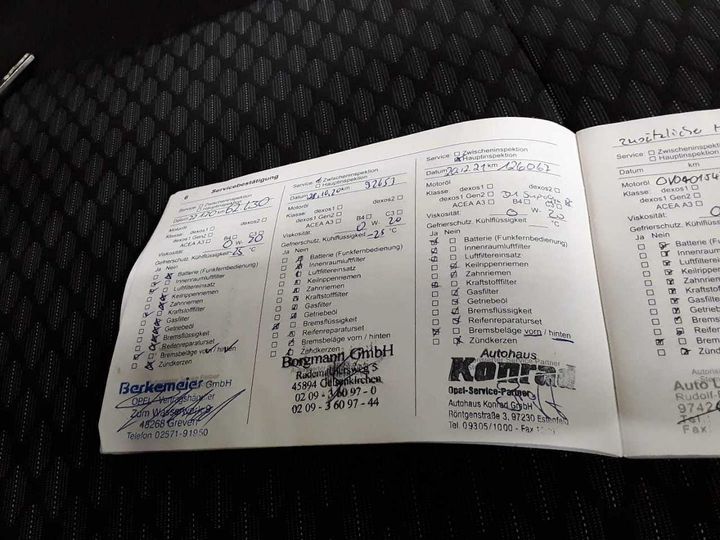 6 Servicebestätigung
Service: Zwischeninspektion
Hauptinspektion
Datum km 62130
Motoröl
Klasse: dexos1 dexos2
dexos1 Gen2 C3
ACEA A3 B4
Viskosität 0 W- 20
Gefrierschutz, Kühlflüssigkeit -25 °C
Ja Nein
Batterie (Funkfernbedienung)
Innenraumluftfilter
Luftfiltereinsatz
Keilrippenriemen
Zahnriemen
Kraftstofffilter
Gasfilter
Getriebeöl
Bremsflüssigkeit
Reifenreparaturset
Bremsbeläge vorn / hinten
Zündkerzen
Berkemeier GmbH
OPEL-Vertragshändler
48268 Greven
Telefon 02571-91950
Service: Zwischeninspektion
Hauptinspektion
Datum km 92653
Motoröl
Klasse: dexos1 dexos2
dexos1 Gen2 C3
ACEA A3 B4
Viskosität 0 W- 20
Gefrierschutz, Kühlflüssigkeit -25 °C
Ja Nein
Batterie (Funkfernbedienung)
Innenraumluftfilter
Luftfiltereinsatz
Keilrippenriemen
Zahnriemen
Kraftstofffilter
Gasfilter
Getriebeöl
Bremsflüssigkeit
Reifenreparaturset
Bremsbeläge vorn / hinten
Zündkerzen
Borgmann GmbH
45894 Gelsenkirchen
02 09 - 3 60 97-0
02 09 - 3 60 97-44
Service: Zwischeninspektion
Hauptinspektion
Datum 20.12.21 km 126067
Motoröl
Klasse: dexos1 dexos2
dexos1 Gen2
ACEA A3 B4 C3
Viskosität 0 W- 20
Gefrierschutz, Kühlflüssigkeit °C
Ja Nein
Batterie (Funkfernbedienung)
Innenraumluftfilter
Luftfiltereinsatz
Keilrippenriemen
Zahnriemen
Kraftstofffilter
Gasfilter
Getriebeöl
Bremsflüssigkeit
Reifenreparaturset
Bremsbeläge vorn / hinten
Zündkerzen
Autohaus
Konrad
Opel-Service-Partner
Autohaus Konrad GmbH
Röntgenstraße 3, 97230 Estenfeld
Tel. 09305/1000 - Fax
zusätzliche
Service: Zwischeninspektion
Hauptinspektion
Datum km
Motoröl
Klasse: dexos1
dexos1 Gen2
ACEA A3
Viskosität
Gefrierschutz, Kühlfl
Ja Nein
Batterie
Innenraum
Luftfilter
Keilrippe
Zahnriem
Kraftsto
Gasfilte
Getrieb
Brems
Reifen
Brems
Zündk
Auto
Rudolf-
9742
Tel.
Fax